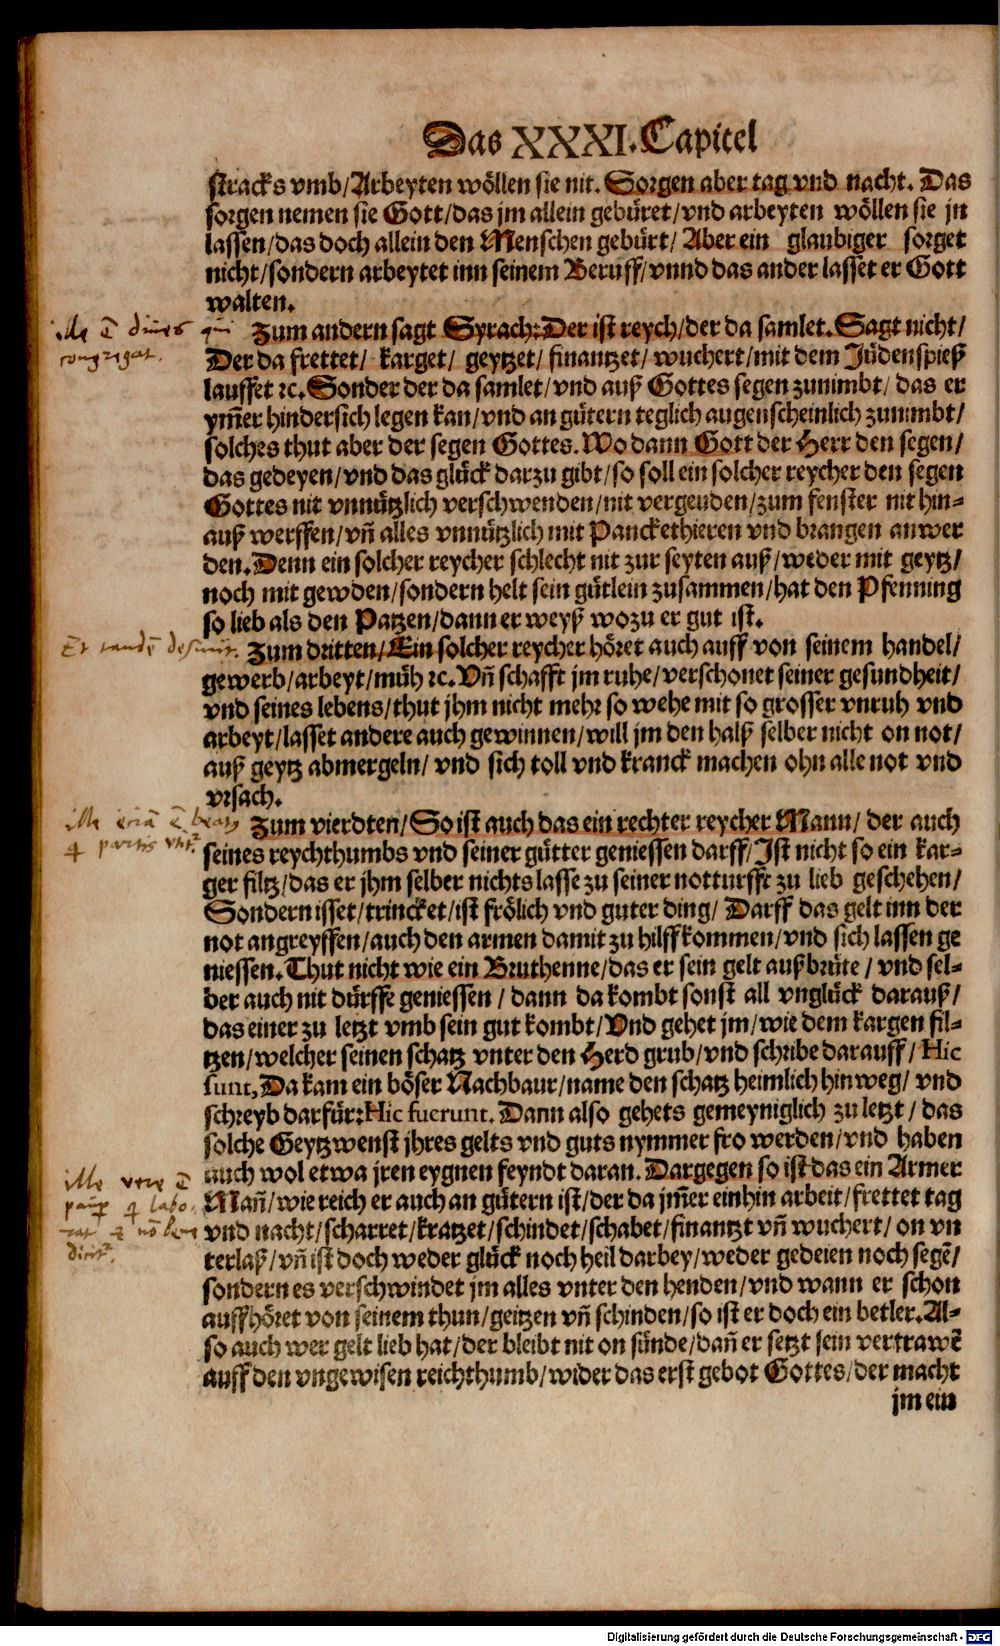 Das XXXI. Capitel
stracks vmb/Arbeyten wöllen sie nit. Sorgen aber tag vnd nacht. Das
sorgen nemen sie Gott/das jm allein gebüret/vnd arbeyten wöllen sie jn
lassen/das doch allein den Menschen gebürt/Aber ein glaubiger sorget
nicht/sondern arbeytet inn seinem Beruff/vnnd das ander lasset er Gott
walten.
ille ē diues qui
congregat.
Zum andern sagt Syrach: Der ist reych/der da samlet. Sagt nicht/
Der da frettet/ karget/ geytzet/ finantzet/ wuchert/mit dem Jüdenspieß
lauffet ꝛc. Sonder der da samlet/vnd auß Gottes segen zunimbt/ das er
ym̃er hindersich legen kan/vnd an gütern teglich augenscheinlich zunimbt/
solches thut aber der segen Gottes. Wo dann Gott der Herr den segen/
das gedeyen/vnd das glück darzu gibt/so soll ein solcher reycher den segen
Gottes nit vnnützlich verschwenden/nit vergeuden/zum fenster nit hin-
auß werffen/vñ alles vnnützlich mit Panckethieren vnd brangen anwer
den. Denn ein solcher reycher schlecht nit zur seyten auß/weder mit geytz/
noch mit gewden/sondern helt sein gütlein zusammen/hat den Pfenning
so lieb als den Patzen/dann er weyß wozu er gut ist.
Et tandē desinit.
Zum dritten/Ein solcher reycher höret auch auff von seinem handel/
gewerb/arbeyt/müh ꝛc. Vñ schafft jm ruhe/verschonet seiner gesundheit/
vnd seines lebens/thut jhm nicht mehr so wehe mit so grosser vnruh vnd
arbeyt/lasset andere auch gewinnen/will jm den halß selber nicht on not/
auß geytz abmergeln/ vnd sich toll vnd kranck machen ohn alle not vnd
vrsach.
ille etiā ē
Zum vierdten/So ist auch das ein rechter reycher Mann/ der auch
seines reychthumbs vnd seiner gütter geniessen darff/Ist nicht so ein kar-
ger filtz/das er jhm selber nichts lasse zu seiner notturfft zu lieb geschehen/
Sondern isset/trincket/ist frölich vnd guter ding/ Darff das gelt inn der
not angreyffen/auch den armen damit zu hilff kommen/vnd sich lassen ge
niessen. Thut nicht wie ein Bruthenne/das er sein gelt außbrüte/ vnd sel-
ber auch nit dürffe geniessen/ dann da kombt sonst all vnglück darauß/
das einer zu letzt vmb sein gut kombt/Vnd gehet jm/wie dem kargen fil-
tzen/welcher seinen schatz vnter den Herd grub/vnd schribe darauff/Hic
sunt, Da kam ein böser Nachbaur/name den schatz heimlich hinweg/ vnd
schreyb darfür: Hic fuerunt. Dann also gehets gemeyniglich zu letzt/ das
solche Geytzwenst jhres gelts vnd guts nymmer fro werden/vnd haben
auch wol etwa jren eygnen feyndt daran. Dargegen so ist das ein Armer
ille vere ē
paup̄ q̄ labo
rat
Mañ/wie reich er auch an gütern ist/der da jm̃er einhin arbeit/frettet tag
vnd nacht/scharret/kratzet/schindet/schabet/finantzt vñ wuchert/on vn
terlaß/vñ ist doch weder glück noch heil darbey/weder gedeien noch segē/
sondern es verschwindet jm alles vnter den henden/vnd wann er schon
auffhöret von seinem thun/geitzen vñ schinden/so ist er doch ein betler. Al-
so auch wer gelt lieb hat/der bleibt nit on sünde/dañ er setzt sein vertrawē
auff den vngewisen reichthumb/wider das erst gebot Gottes/der macht
jm ein
Digitalisierung gefördert durch die Deutsche Forschungsgemeinschaft - DFG